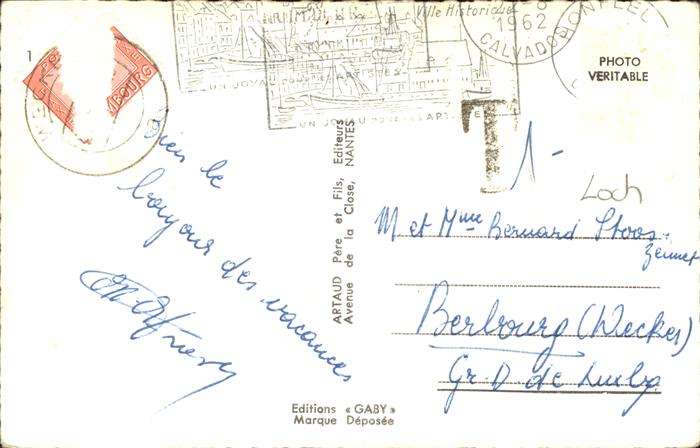 1
BOURG
Ville Historique
1962
CALVADOS
HONFLEUR
UN JOYAU POUR LES ARTISTES
UN JOYAU POUR LES ARTISTES
T
PHOTO
VERITABLE
1-
Loch
Bien le
bonjour des vacances
ARTAUD Père et Fils, Editeurs
Avenue de la Close, NANTES
M et Mme Bernard Stoos-
Zennet
Berbourg (Wecker)
Gr D de Luxbg
Editions « GABY »
Marque Déposée